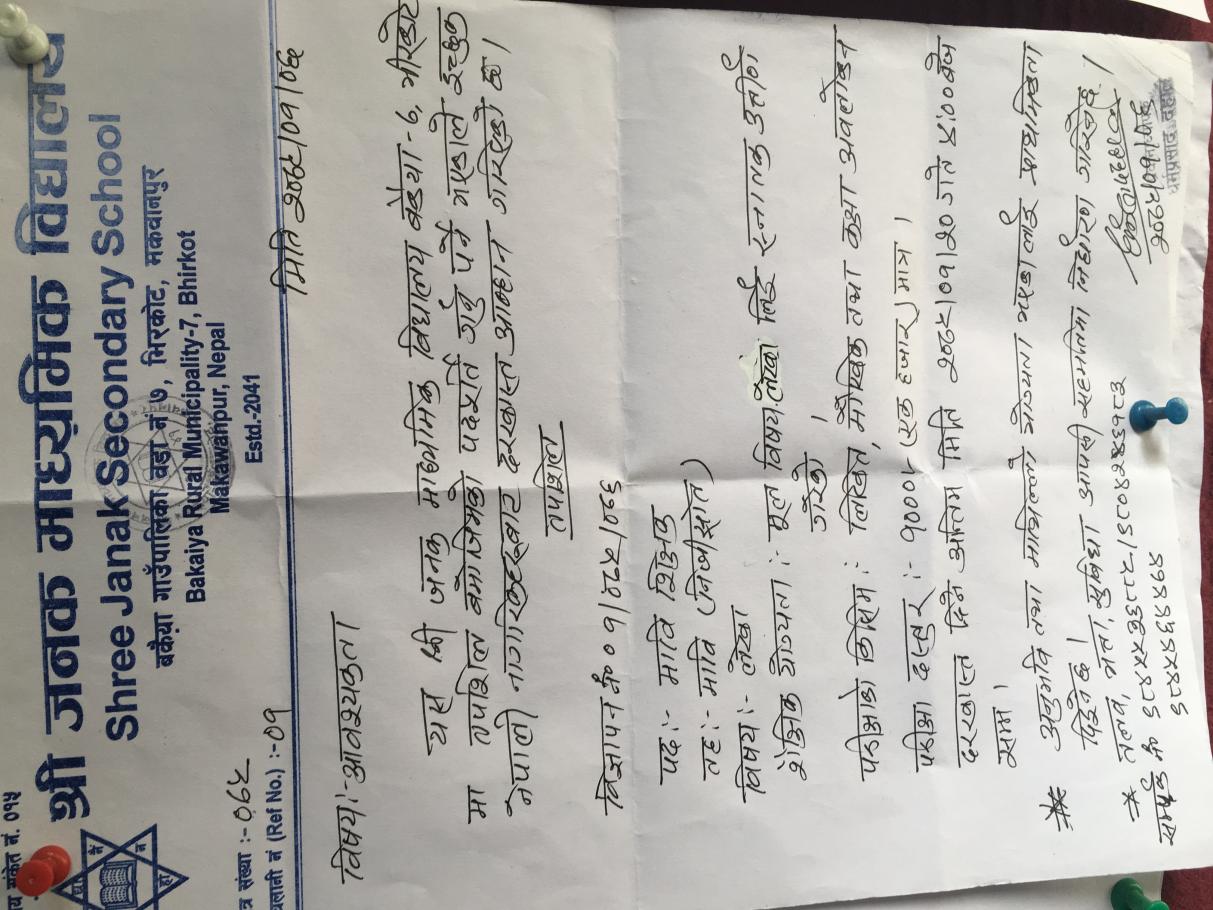 य संकेत नं. ०१५
श्री जनक माध्यमिक विद्यालय
Shree Janak Secondary School
बकैया गाउँपालिका वडा नं ७, भिरकोट, मकवानपुर
Bakaiya Rural Municipality-7, Bhirkot
Makawanpur, Nepal
Estd.-2041
त्र संख्या :- ०६८
चलानी नं (Ref No.) :- ०१
मिति २०६८/०१/०६
विषयः- आवश्यकता।
यस श्री जनक माध्यमिक विद्यालय बकैया - ७, भीरकोट
मा तपशिल बमोजिमको पदपूर्ति गर्नु पर्ने भएकोले इच्छुक
नेपाली नागरिकहरुबाट दरखास्त आव्हान गरिएको छ।
तपशिल
विज्ञापन नं० ०१/०६८/०६९
पदः- मावि शिक्षक
तहः- मावि (निजी स्रोत)
विषयः- लेखा
शैक्षिक योग्यता :- मूल विषय लेखा लिई स्नातक उत्तीर्ण
गरेको।
परीक्षाको किसिम : लिखित, मौखिक तथा कक्षा अवलोकन
परीक्षा दस्तुर :- १०००/- (एक हजार) मात्र।
दरखास्त दिने अन्तिम मिति २०६८/०१/२० गते ४:०० बजे
सम्म।
* अनुभवी तथा माथिल्लो योग्यता भएका लाई प्राथमिकता
दिइने छ।
* तलब, सुविधा आपसी समझदारीमा निर्धारण गरिनेछ।
सम्पर्क नं